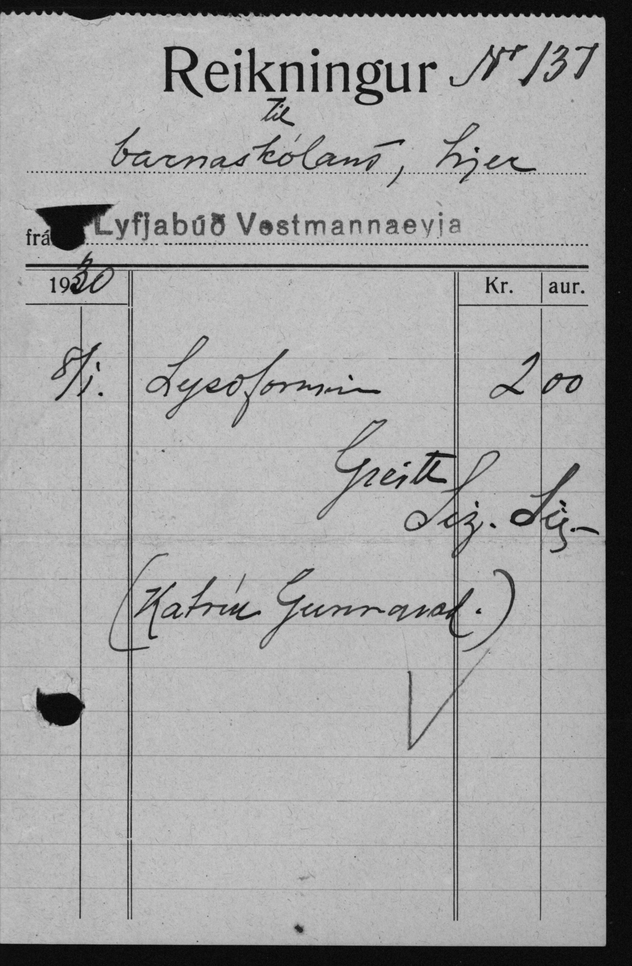 Reikningur Nr 137
til
barnaskólans, hjer
frá Lyfjabúð Vestmannaeyja
1930 Kr. aur.
8/1. Lysoformin 2 00
Greitt
Sig. Sig.
(Katrín Gunnarsd.)